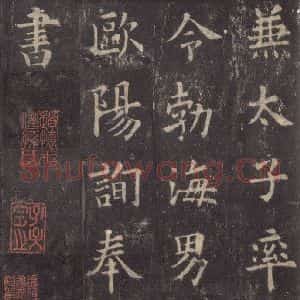 兼太子率
令勃海男
歐陽詢奉
書
shufawang.cn